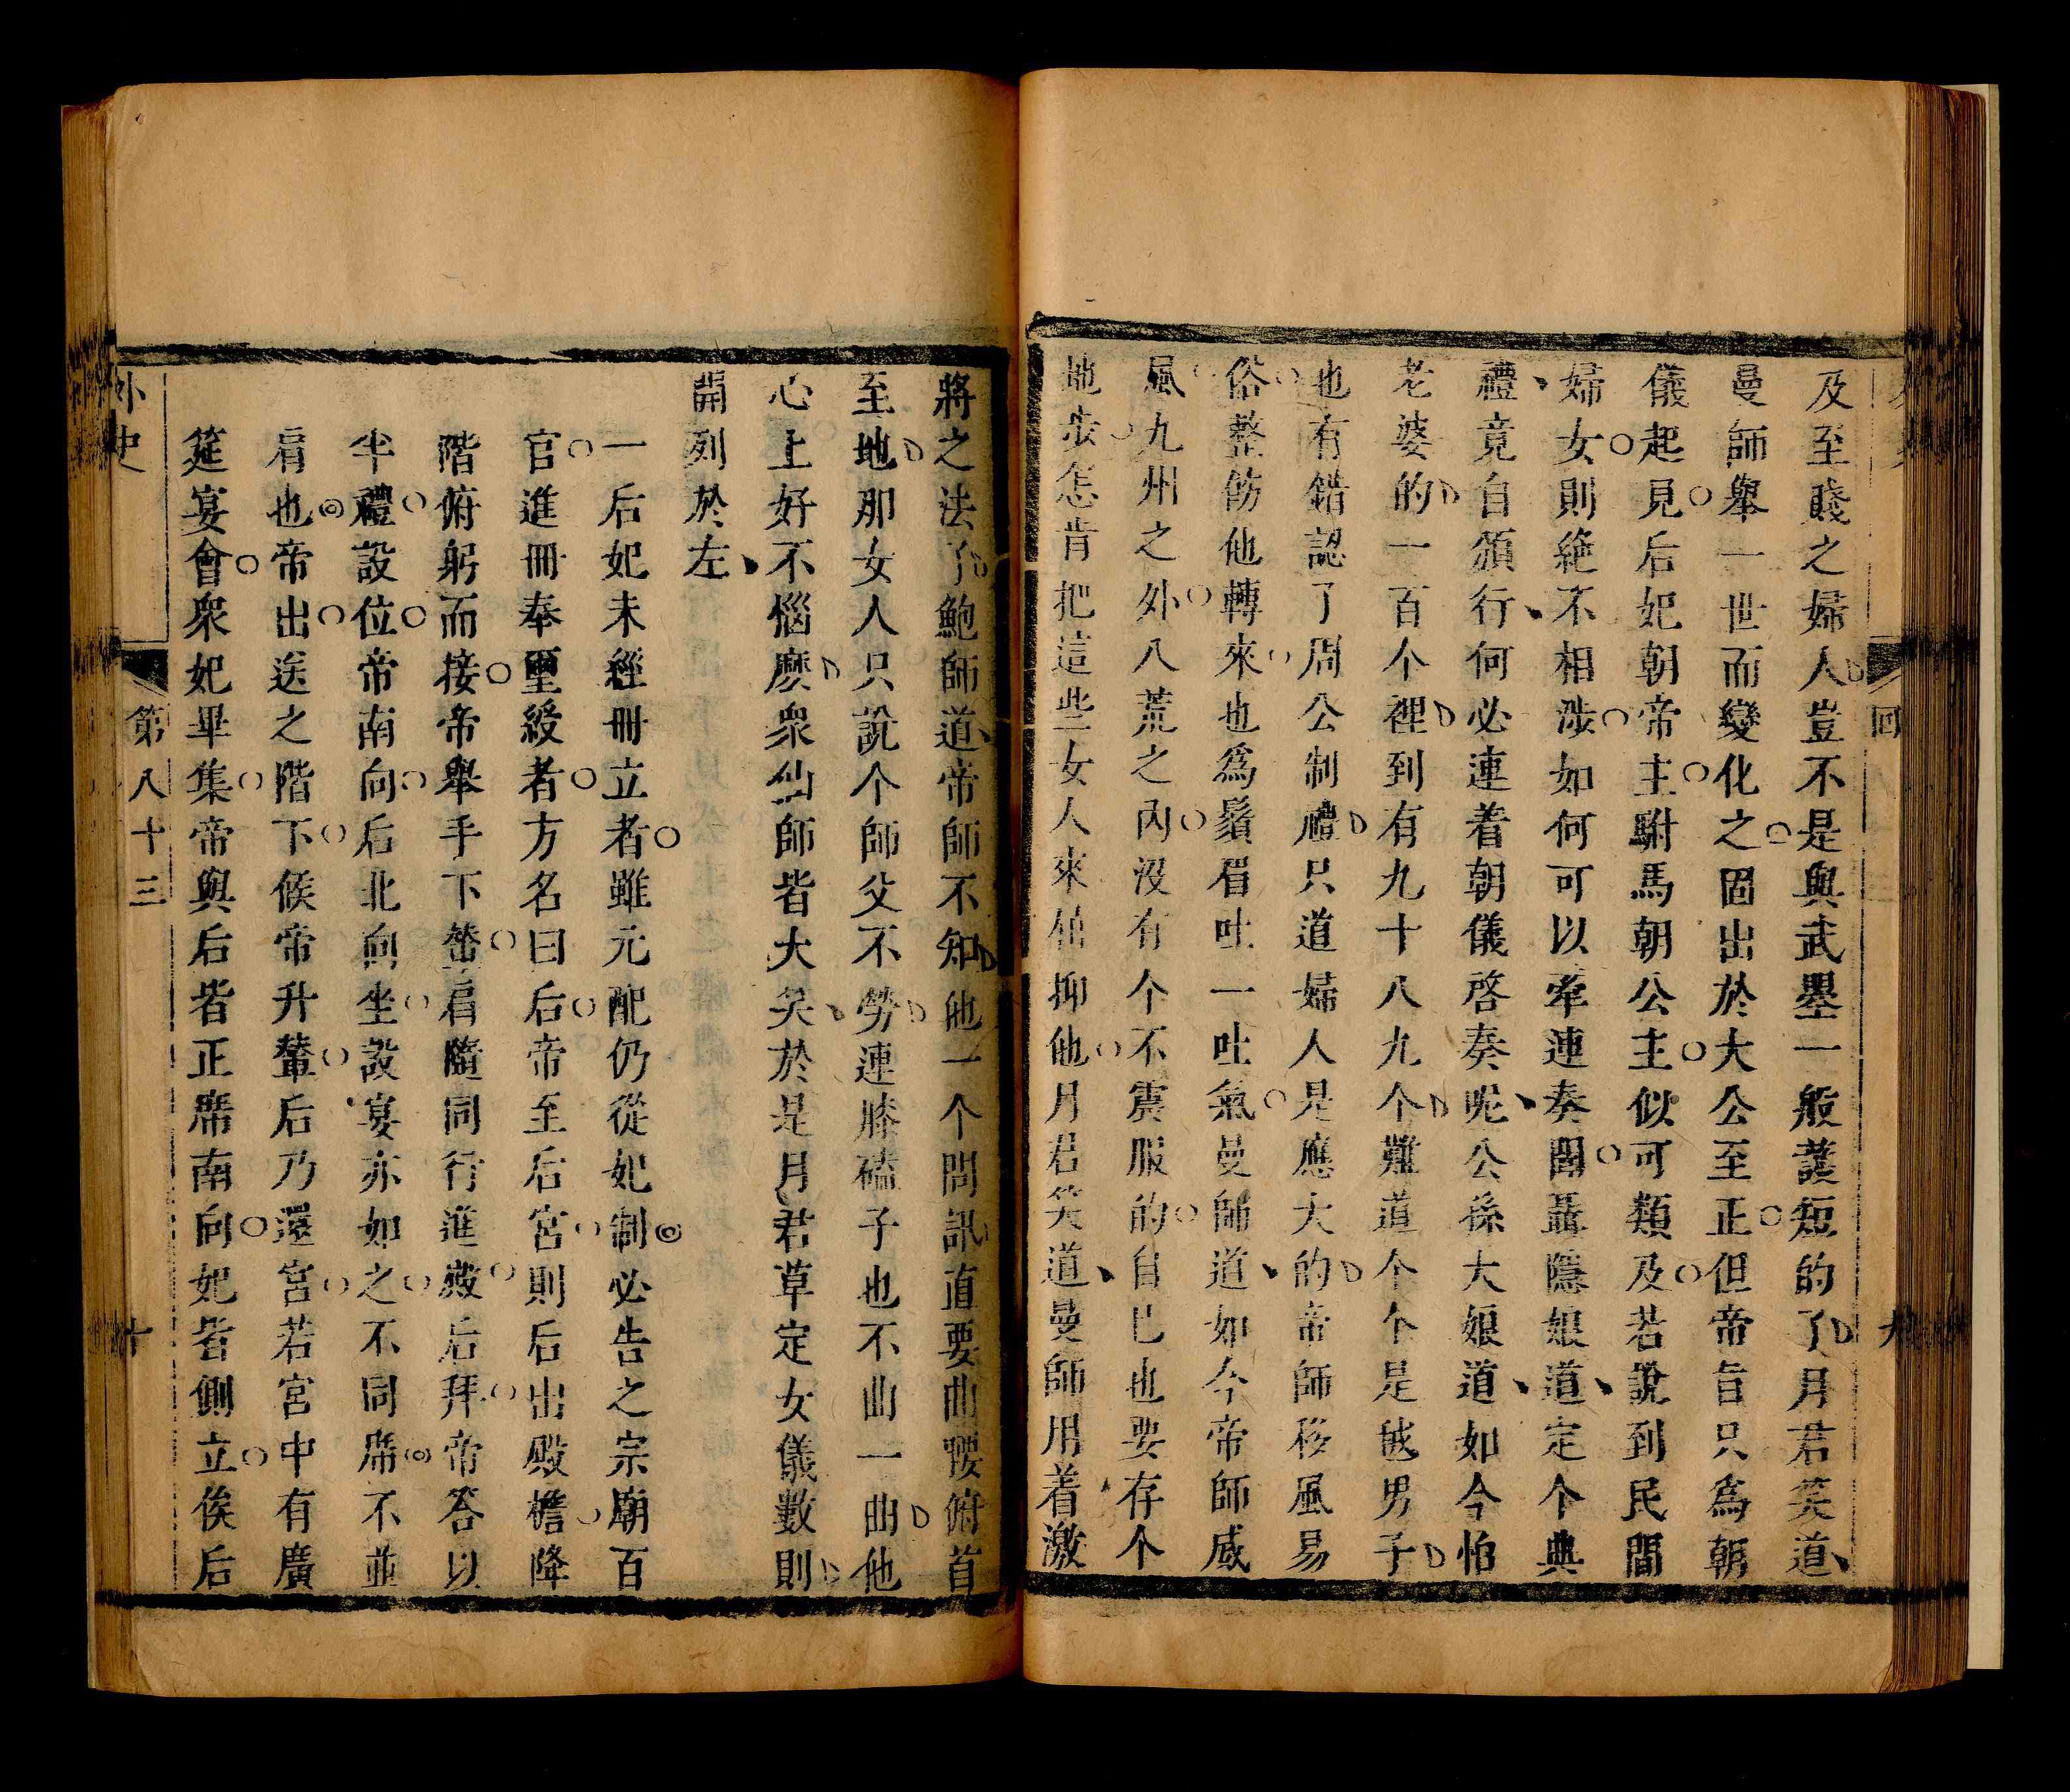 及至賤之婦人豈不是與武曌一般護短的了月君笑道
曼師舉一世而變化之固出於大公至正但帝旨只爲朝
儀起見后妃朝帝主駙馬朝公主似可類及若說到民間
婦女則絶不相涉如何可以牽連奏聞聶隱娘道定个典
禮竟自頒行何必連着朝儀啓奏呢公孫大娘道如今怕
老婆的一百个裡到有九十八九个難道个个是㒲男子
也有錯認了周公制禮只道婦人是應大的帝師移風易
俗整飭他轉來也爲鬚眉吐一吐氣曼師道如今帝師威
風九州之外八荒之內沒有个不震服的自己也要存个
地步怎肯把這些女人來貶抑他月君笑道曼師用着激
將之法了鮑師道帝師不知他一个問訊直要曲腰俯首
至地那女人只說个師父不勞連膝磕子也不曲一曲他
心上好不惱麽衆仙師皆大笑於是月君草定女儀數則
開列於左
一后妃未經冊立者雖元配仍從妃制必告之宗廟百
官進冊奉璽綬者方名曰后帝至后宮則后出殿檐降
階俯躬而接帝舉手下輦肩隨同行進殿后拜帝答以
半禮設位帝南向后北向坐設宴亦如之不同席不並
肩也帝出送之階下候帝升輦后乃還宮若宮中有廣
筵宴會衆妃畢集帝與后皆正席南向妃皆側立俟后
外史
第八十三
十